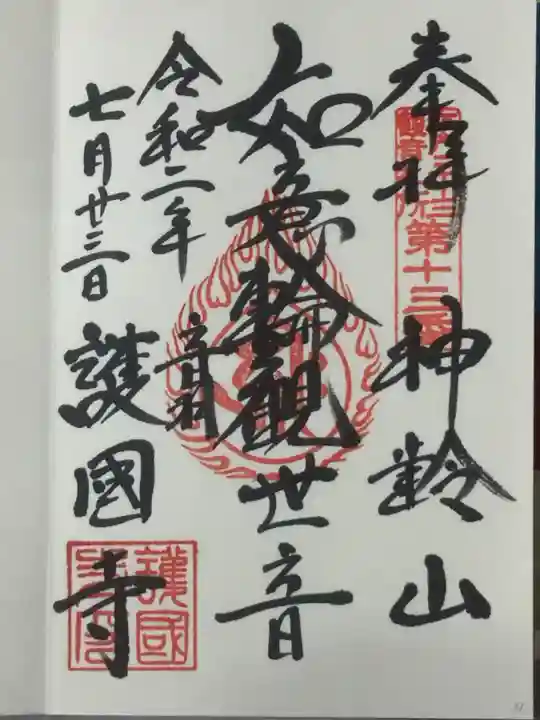 奉拝 神齢山
如意輪観世音
令和二年
七月廿三日
音羽
護國寺
第十三番
護國